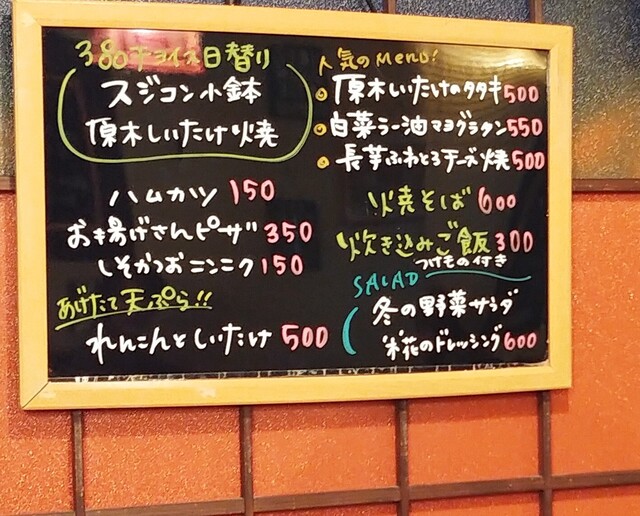 380チョイス日替り
スジコン小鉢
原木しいたけ焼
ハムカツ 150
お揚げさんピザ 350
しそかつおニンニク 150
あげたて天ぷら!!
れんこんとしいたけ 500
人気のMENU!
原木しいたけのタタキ 500
白菜ラー油マヨグラタン 550
長芋ふわとろチーズ焼 500
焼そば 600
炊き込みご飯 300
つけもの付き
SALAD
冬の野菜サラダ
花のドレッシング 600